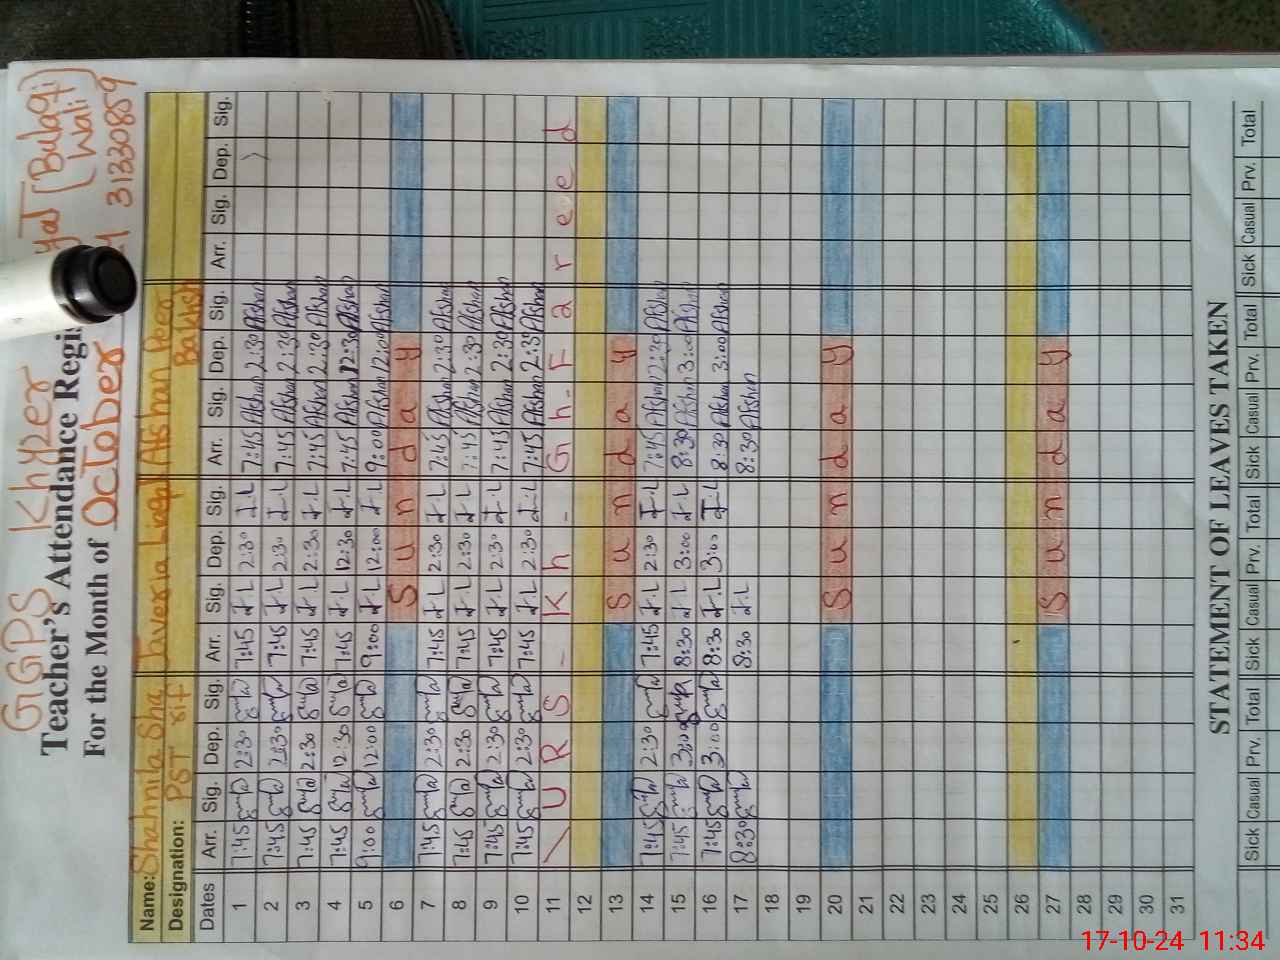 GGPS Khyzer
yal (Bulaqi Wali)
31330859
Teacher's Attendance Regis
For the Month of October
Name: Shahnila Sha rif Javeria Liaqat Afshan Peer Bakhsh
Designation: PST
Dates Arr. Sig. Dep. Sig. Arr. Sig. Dep. Sig. Arr. Sig. Dep. Sig. Arr. Sig. Dep. Sig.
1 7:45 2:30 7:45 J.L 2:30 J.L 7:45 Afshan 2:30 Afshan
2 7:45 2:30 7:45 J.L 2:30 J.L 7:45 Afshan 2:30 Afshan
3 7:45 2:30 7:45 J.L 2:30 J.L 7:45 Afshan 2:30 Afshan
4 7:45 12:30 7:45 J.L 12:30 J.L 7:45 Afshan 12:30 Afshan
5 9:00 12:00 9:00 J.L 12:00 J.L 9:00 Afshan 12:00 Afshan
6 Sunday
7 7:45 2:30 7:45 J.L 2:30 J.L 7:45 Afshan 2:30 Afshan
8 7:45 2:30 7:45 J.L 2:30 J.L 7:45 Afshan 2:30 Afshan
9 7:45 2:30 7:45 J.L 2:30 J.L 7:45 Afshan 2:30 Afshan
10 7:45 2:30 7:45 J.L 2:30 J.L 7:45 Afshan 2:35 Afshan
11 \ U R S - K h - G h - F a r e e d
12
13 Sunday
14 7:45 2:30 7:45 J.L 2:30 J.L 7:45 Afshan 2:30 Afshan
15 7:45 3:00 8:30 J.L 3:00 J.L 8:30 Afshan 3:00 Afshan
16 7:45 3:00 8:30 J.L 3:00 J.L 8:30 Afshan 3:00 Afshan
17 8:30 8:30 J.L 8:30 Afshan
18
19
20 Sunday
21
22
23
24
25
26
27 Sunday
28
29
30
31
STATEMENT OF LEAVES TAKEN
Sick Casual Prv. Total Sick Casual Prv. Total Sick Casual Prv. Total Sick Casual Prv. Total
17-10-24 11:34